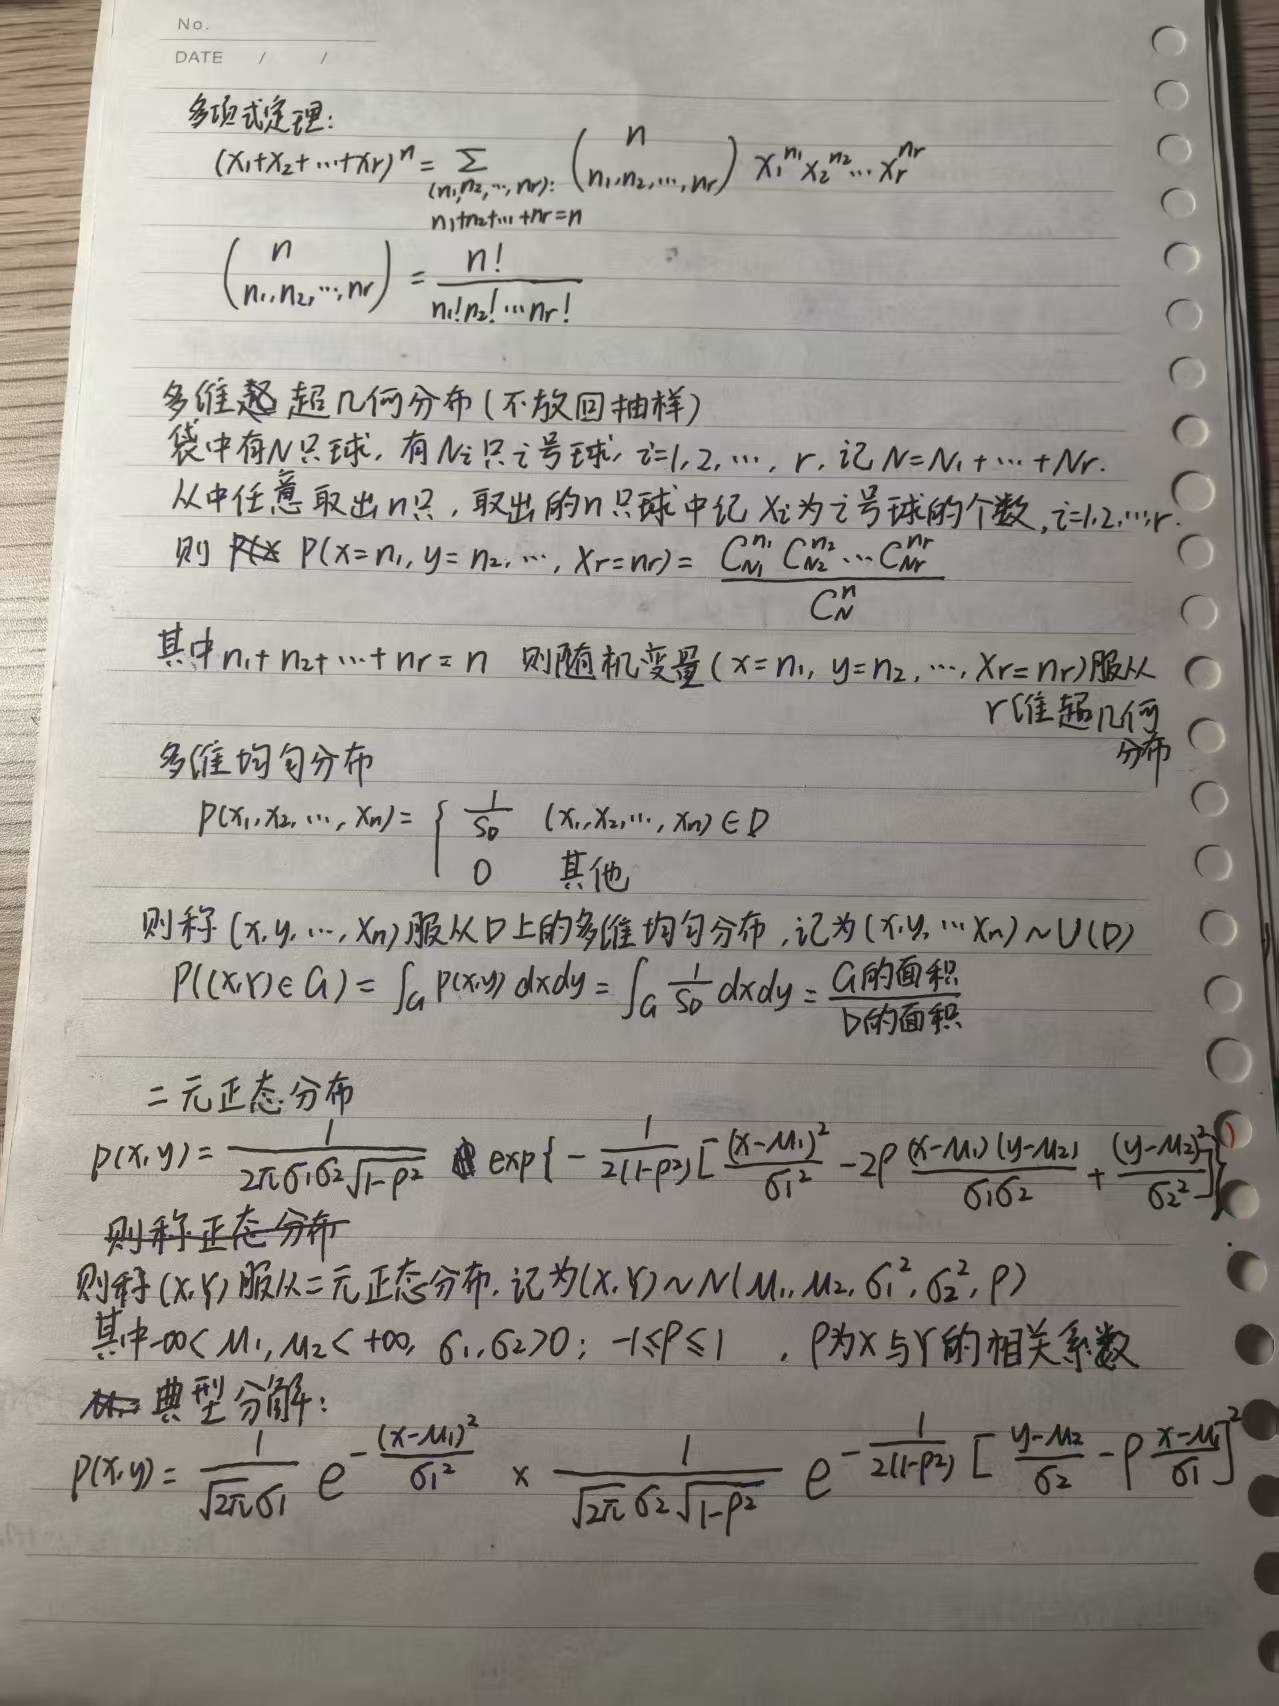 No.
DATE / /
多项式定理:
(x₁+x₂+…+xr)ⁿ = Σ_{(n₁,n₂,…,nr): n₁+n₂+…+nr=n} (n / n₁,n₂,…,nr) x₁^{n₁} x₂^{n₂} … xr^{nr}
(n / n₁,n₂,…,nr) = n! / (n₁!n₂!…nr!)
多维超几何分布(不放回抽样)
袋中有N只球, 有Nᵢ只i号球, i=1,2,…,r, 记N=N₁+…+Nr.
从中任意取出n只, 取出的n只球中记Xᵢ为i号球的个数, i=1,2,…,r.
则 P(x=n₁, y=n₂, …, Xr=nr) = C_{N₁}^{n₁} C_{N₂}^{n₂} … C_{Nr}^{nr} / C_N^n
其中n₁+n₂+…+nr=n 则随机变量(x=n₁, y=n₂, …, Xr=nr)服从
r维超几何
分布
多维均匀分布
P(x₁,x₂,…,xn) = { 1/S_D (x₁,x₂,…,xn)∈D
0 其他
则称(x,y,…,Xn)服从D上的多维均匀分布, 记为(x,y,…Xn)~U(D)
P((X,Y)∈G) = ∫_G p(x,y) dxdy = ∫_G 1/S_D dxdy = G的面积 / D的面积
二元正态分布
p(x,y) = 1/(2πσ₁σ₂√(1-ρ²)) exp{ - 1/(2(1-ρ²)) [ (x-μ₁)²/σ₁² - 2ρ (x-μ₁)(y-μ₂)/(σ₁σ₂) + (y-μ₂)²/σ₂² ] }
则称正态分布
则称(X,Y)服从二元正态分布, 记为(X,Y)~N(μ₁,μ₂,σ₁²,σ₂²,ρ)
其中-∞<μ₁,μ₂<+∞, σ₁,σ₂>0; -1≤ρ≤1 , ρ为X与Y的相关系数
典型分解:
p(x,y) = 1/(√2π σ₁) e^{-(x-μ₁)²/σ₁²} × 1/(√2π σ₂√(1-ρ²)) e^{- 1/(2(1-ρ²)) [ (y-μ₂)/σ₂ - ρ (x-μ₁)/σ₁ ]²}